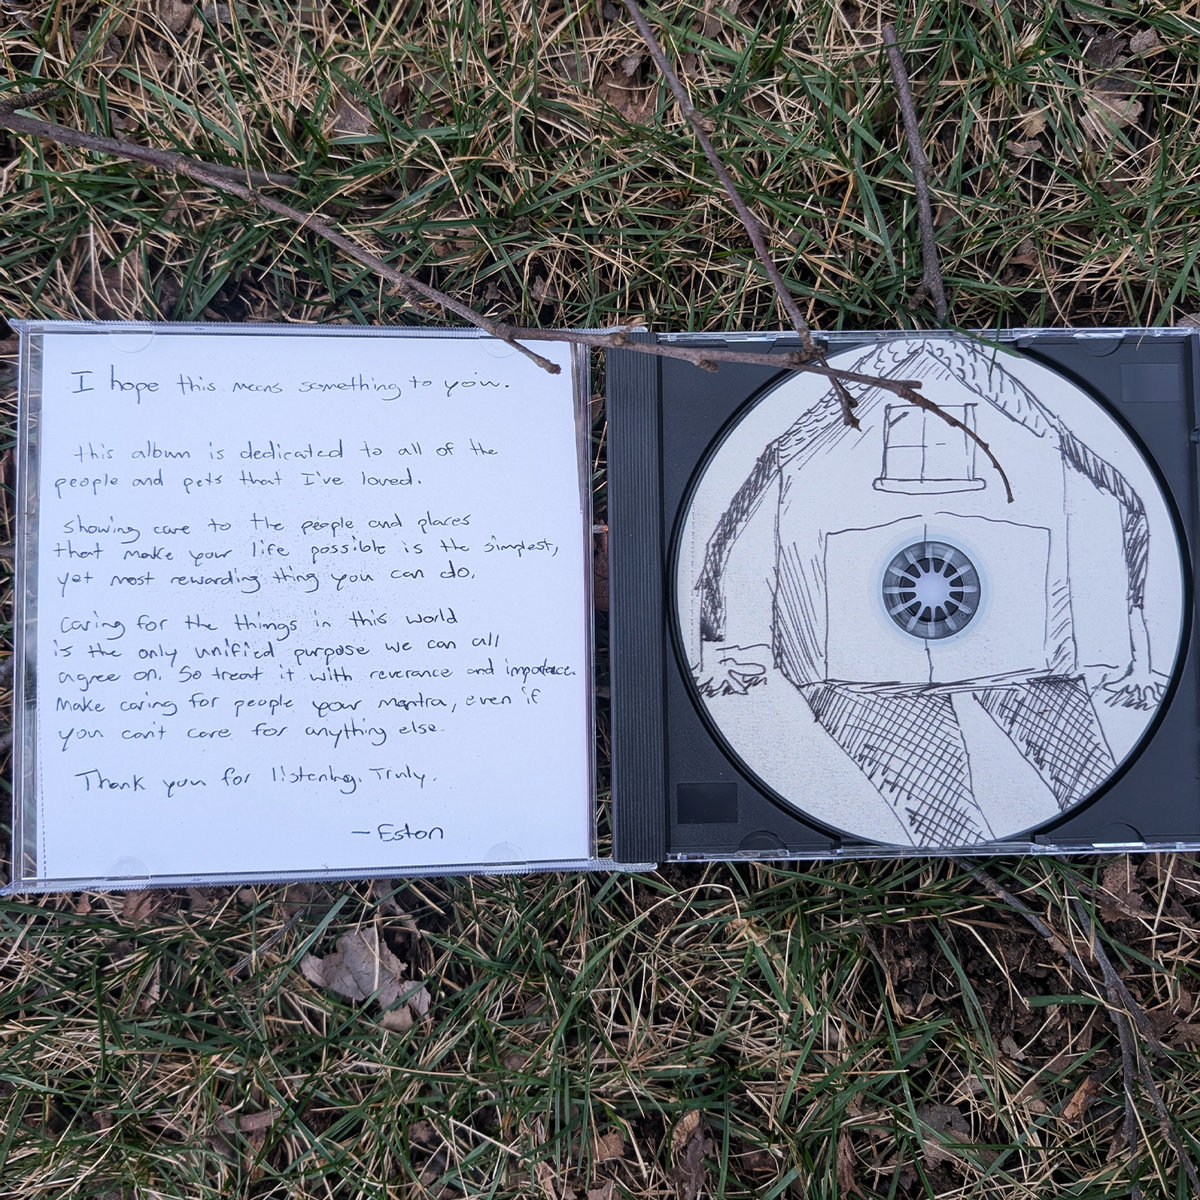 I hope this means something to you.
this album is dedicated to all of the
people and pets that I've loved.
showing care to the people and places
that make your life possible is the simplest,
yet most rewarding thing you can do.
caring for the things in this world
is the only unified purpose we can all
agree on. So treat it with reverance and importance.
Make caring for people your mantra, even if
you can't care for anything else.
Thank you for listening. Truly.
- Eston